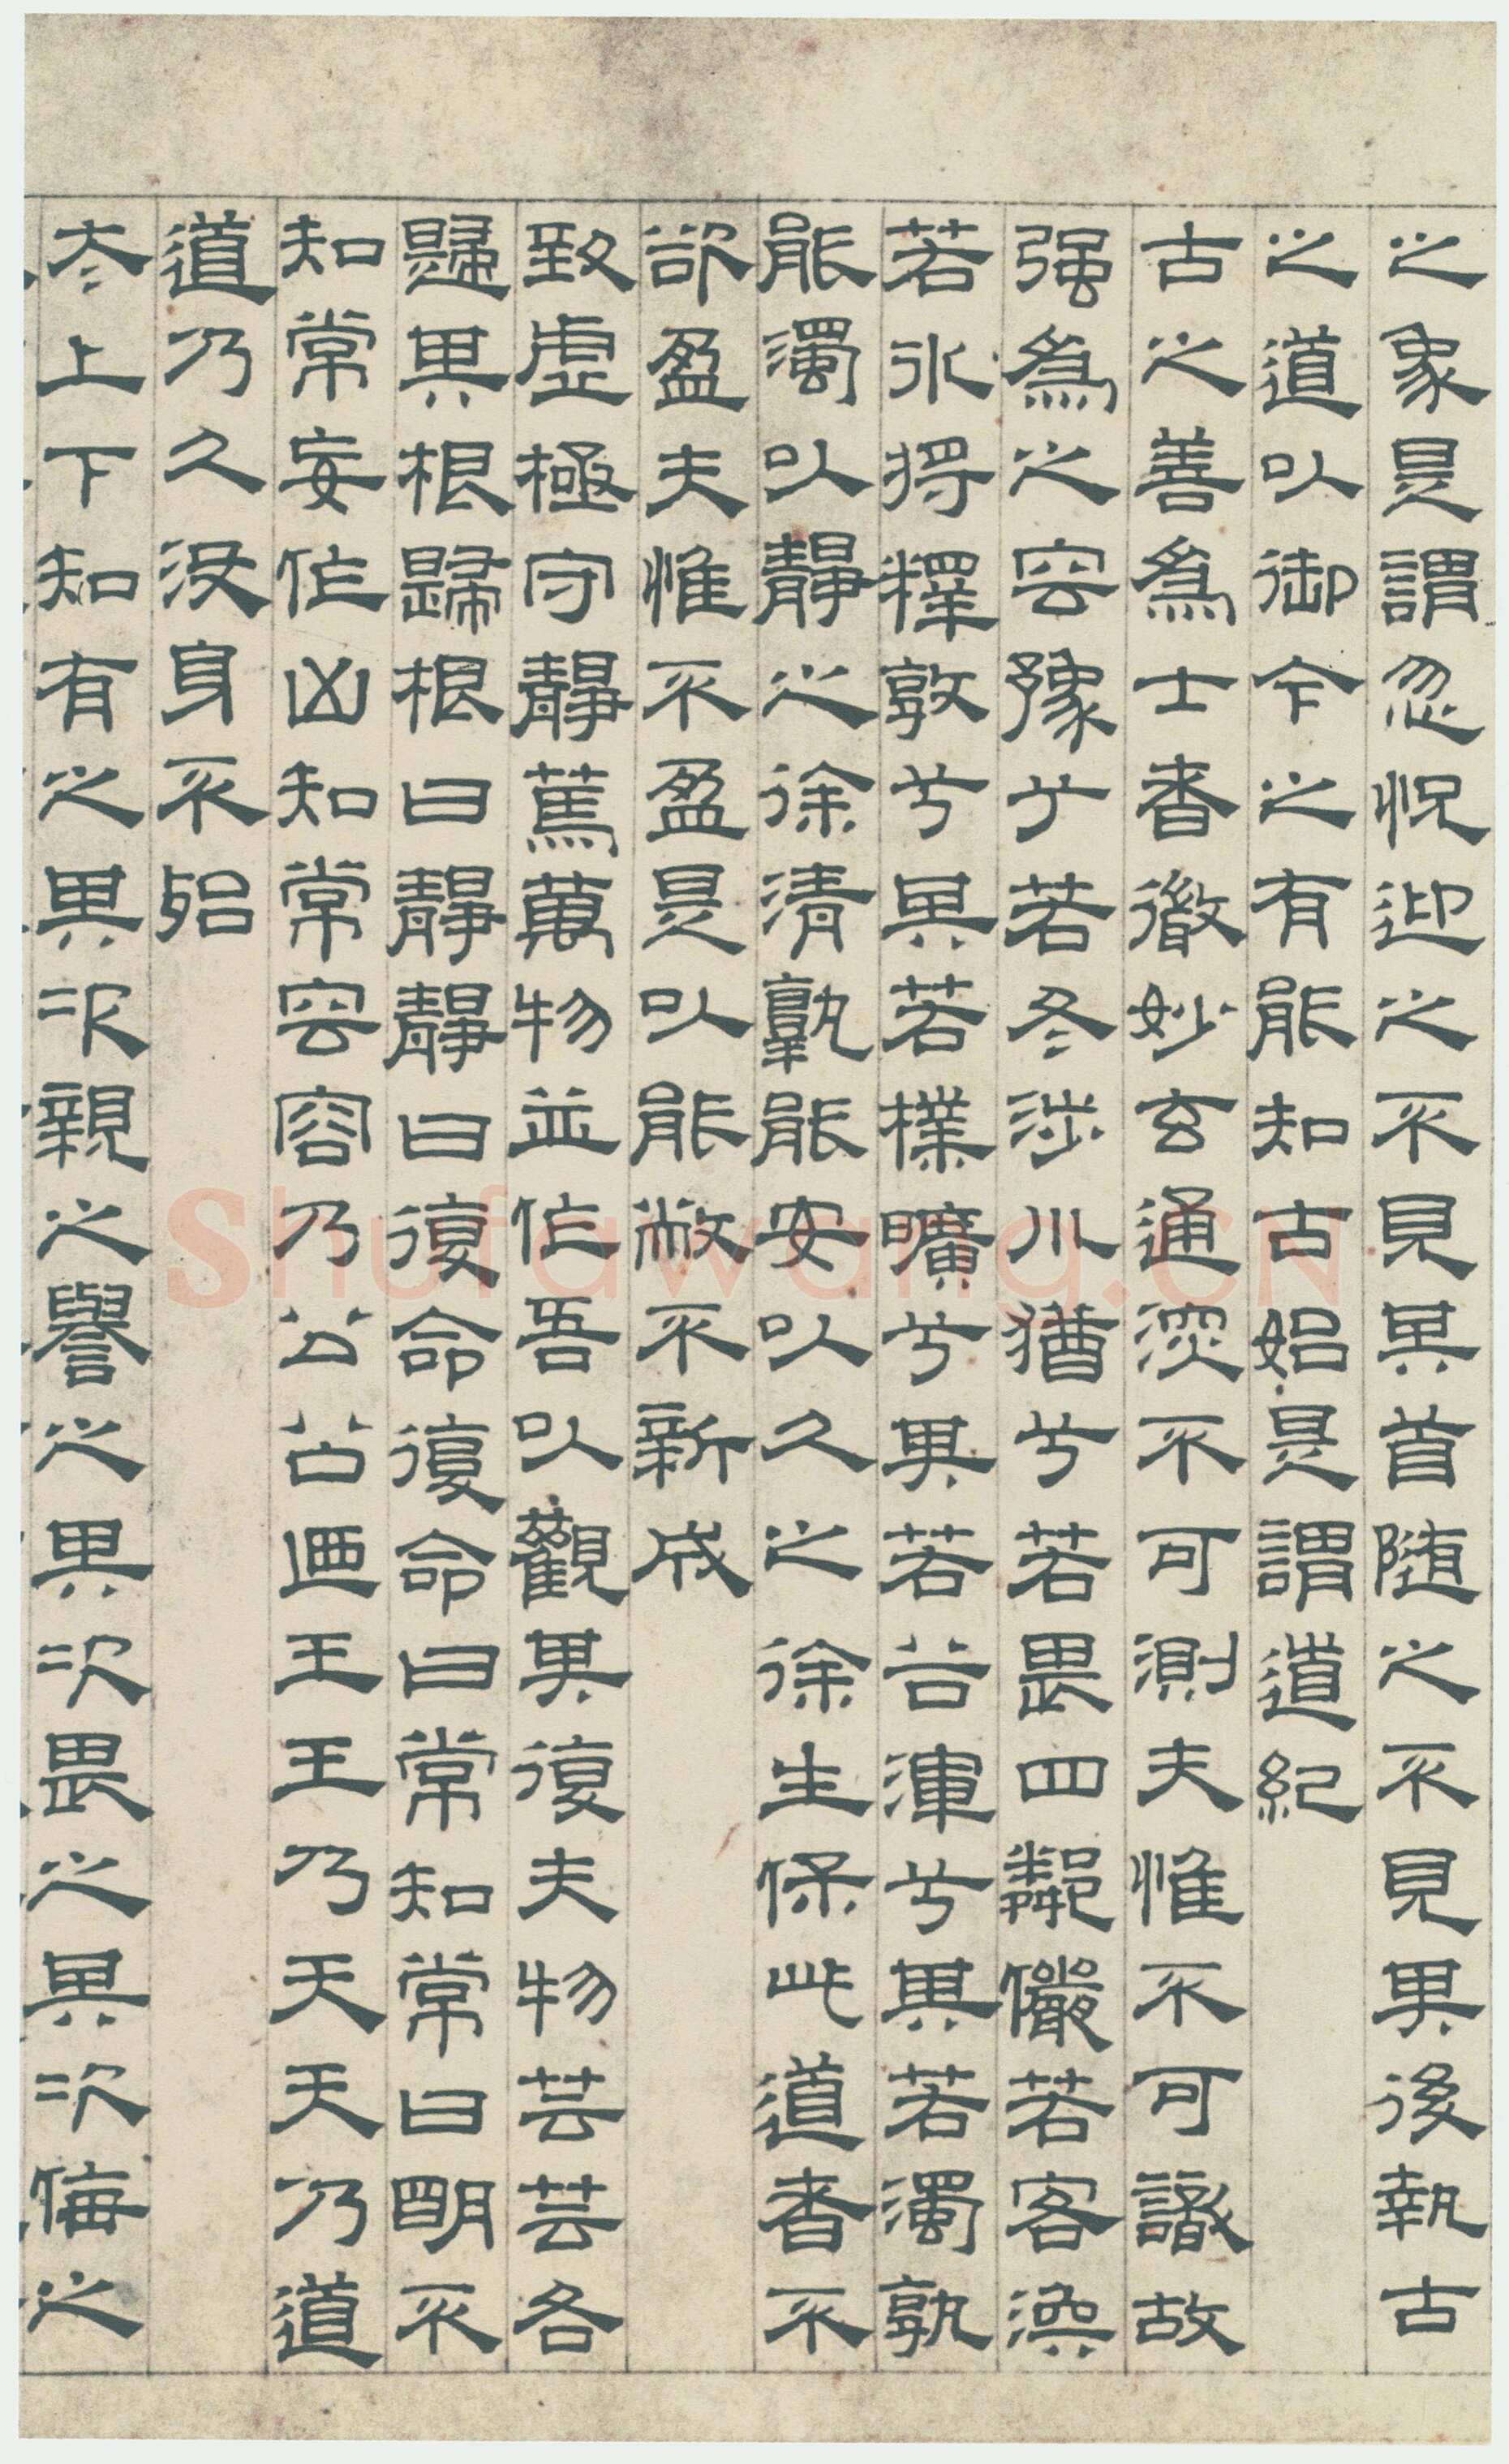 之象是謂忽怳迎之不見其首随之不見其後執古
之道以御今之有能知古始是謂道紀
古之善為士者微妙玄通深不可測夫惟不可識故
强為之容豫兮若冬涉川猶兮若畏四鄰儼若客渙
若冰将釋敦兮其若樸曠兮其若谷渾兮其若濁孰
能濁以靜之徐清孰能安以久之徐生保此道者不
欲盈夫惟不盈是以能敝不新成
致虛極守靜篤萬物並作吾以觀其復夫物芸芸各
歸其根歸根曰靜靜曰復命復命曰常知常曰明不
知常妄作凶知常容容乃公公迺王王乃天天乃道
道乃久没身不殆
太上下知有之其次親之譽之其次畏之其次侮之
Shufawang.CN